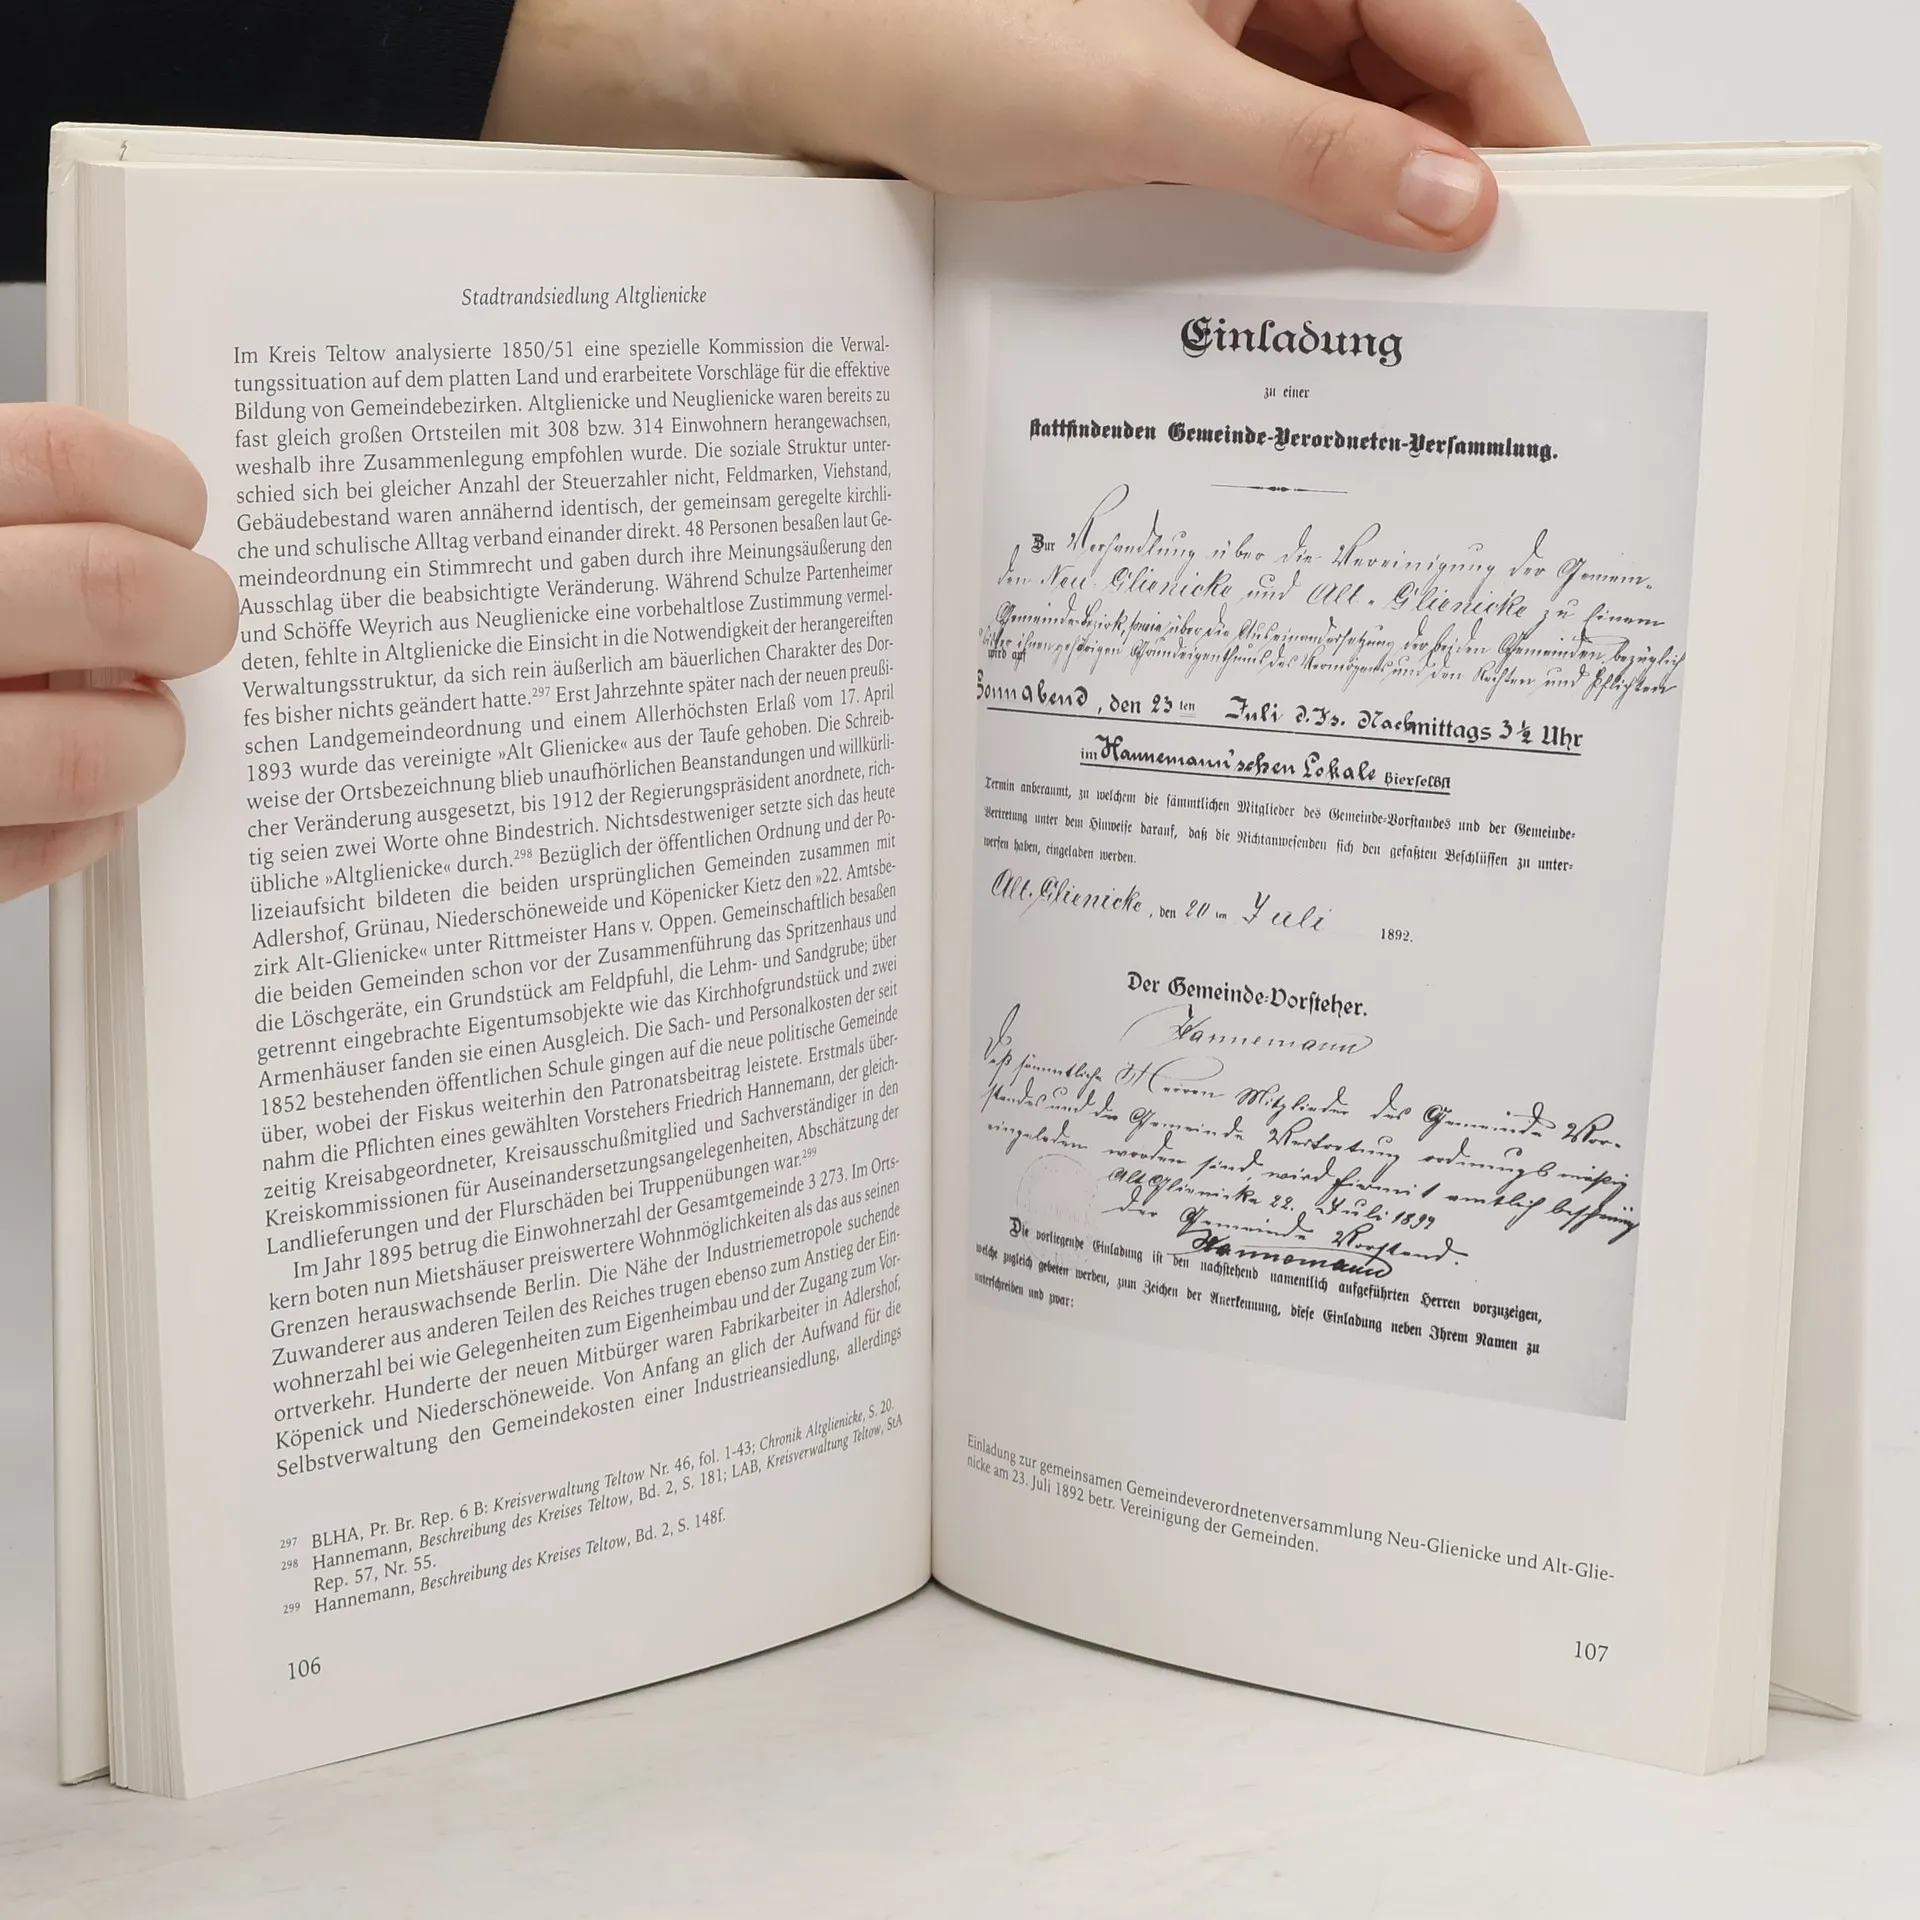 Stadtrandsiedlung Altglienicke
Im Kreis Teltow analysierte 1850/51 eine spezielle Kommission die Verwal-
tungssituation auf dem platten Land und erarbeitete Vorschläge für die effektive
Bildung von Gemeindebezirken. Altglienicke und Neuglienicke waren bereits zu
fast gleich großen Ortsteilen mit 308 bzw. 314 Einwohnern herangewachsen,
weshalb ihre Zusammenlegung empfohlen wurde. Die soziale Struktur unter-
schied sich bei gleicher Anzahl der Steuerzahler nicht, Feldmarken, Viehstand,
Gebäudebestand waren annähernd identisch, der gemeinsam geregelte kirchli-
che und schulische Alltag verband einander direkt. 48 Personen besaßen laut Ge-
meindeordnung ein Stimmrecht und gaben durch ihre Meinungsäußerung den
Ausschlag über die beabsichtigte Veränderung. Während Schulze Partenheimer
und Schöffe Weyrich aus Neuglienicke eine vorbehaltlose Zustimmung vermel-
deten, fehlte in Altglienicke die Einsicht in die Notwendigkeit der herangereiften
Verwaltungsstruktur, da sich rein äußerlich am bäuerlichen Charakter des Dor-
fes bisher nichts geändert hatte.297 Erst Jahrzehnte später nach der neuen preußi-
schen Landgemeindeordnung und einem Allerhöchsten Erlaß vom 17. April
1893 wurde das vereinigte »Alt Glienicke« aus der Taufe gehoben. Die Schreib-
weise der Ortsbezeichnung blieb unaufhörlichen Beanstandungen und willkürli-
cher Veränderung ausgesetzt, bis 1912 der Regierungspräsident anordnete, rich-
tig seien zwei Worte ohne Bindestrich. Nichtsdestweniger setzte sich das heute
übliche »Altglienicke« durch.298 Bezüglich der öffentlichen Ordnung und der Po-
lizeiaufsicht bildeten die beiden ursprünglichen Gemeinden zusammen mit
Adlershof, Grünau, Niederschöneweide und Köpenicker Kietz den »22. Amtsbe-
zirk Alt-Glienicke« unter Rittmeister Hans v. Oppen. Gemeinschaftlich besaßen
die beiden Gemeinden schon vor der Zusammenführung das Spritzenhaus und
die Löschgeräte, ein Grundstück am Feldpfuhl, die Lehm- und Sandgrube; über
getrennt eingebrachte Eigentumsobjekte wie das Kirchhofgrundstück und zwei
Armenhäuser fanden sie einen Ausgleich. Die Sach- und Personalkosten der seit
1852 bestehenden öffentlichen Schule gingen auf die neue politische Gemeinde
über, wobei der Fiskus weiterhin den Patronatsbeitrag leistete. Erstmals über-
nahm die Pflichten eines gewählten Vorstehers Friedrich Hannemann, der gleich-
zeitig Kreisabgeordneter, Kreisausschußmitglied und Sachverständiger in den
Kreiskommissionen für Auseinandersetzungsangelegenheiten, Abschätzung der
Landlieferungen und der Flurschäden bei Truppenübungen war.299
Im Jahr 1895 betrug die Einwohnerzahl der Gesamtgemeinde 3 273. Im Orts-
kern boten nun Mietshäuser preiswertere Wohnmöglichkeiten als das aus seinen
Grenzen herauswachsende Berlin. Die Nähe der Industriemetropole suchende
Zuwanderer aus anderen Teilen des Reiches trugen ebenso zum Anstieg der Ein-
wohnerzahl bei wie Gelegenheiten zum Eigenheimbau und der Zugang zum Vor-
ortverkehr. Hunderte der neuen Mitbürger waren Fabrikarbeiter in Adlershof,
Köpenick und Niederschöneweide. Von Anfang an glich der Aufwand für die
Selbstverwaltung den Gemeindekosten einer Industrieansiedlung, allerdings
297 BLHA, Pr. Br. Rep. 6 B: Kreisverwaltung Teltow Nr. 46, fol. 1-43; Chronik Altglienicke, S. 20.
298 Hannemann, Beschreibung des Kreises Teltow, Bd. 2, S. 181; LAB, Kreisverwaltung Teltow, StA
Rep. 57, Nr. 55.
299 Hannemann, Beschreibung des Kreises Teltow, Bd. 2, S. 148f.
106
Einladung
zu einer
stattfindenden Gemeinde-Verordneten-Versammlung.
Zur Verhandlung über die Vereinigung der Gemein-
den Neu-Glienicke und Alt-Glienicke zu Einem
Gemeinde-Bezirk, sowie über die Auseinandersetzung der beiden Gemeinden bezüglich
ihnen gehörigen Grundeigenthums des Vermögens und den Rechten und Pflichten
wird auf
Sonnabend, den 23ten Juli d. Js. Nachmittags 3½ Uhr
im Hannemann'schen Lokale hierselbst
Termin anberaumt, zu welchem die sämmtlichen Mitglieder des Gemeinde-Vorstandes und der Gemeinde-
Vertretung unter dem Hinweise darauf, daß die Nichtanwesenden sich den gefaßten Beschlüssen zu unter-
werfen haben, eingeladen werden.
Alt-Glienicke, den 20ten Juli 1892.
Der Gemeinde-Vorsteher.
Hannemann
Daß sämmtliche Herren Mitglieder des Gemeinde Vor-
standes und der Gemeinde Vertretung ordnungsmäßig
eingeladen worden sind, wird hiermit amtlich bescheinigt
Alt Glienicke 22. Juli 189
Der Gemeinde Vorstand.
Hannemann
Die vorliegende Einladung ist den nachstehend namentlich aufgeführten Herren vorzuzeigen,
welche zugleich gebeten werden, zum Zeichen der Anerkennung, diese Einladung neben Ihrem Namen zu
unterschreiben und zwar:
Einladung zur gemeinsamen Gemeindeverordnetenversammlung Neu-Glienicke und Alt-Glie-
nicke am 23. Juli 1892 betr. Vereinigung der Gemeinden.
107